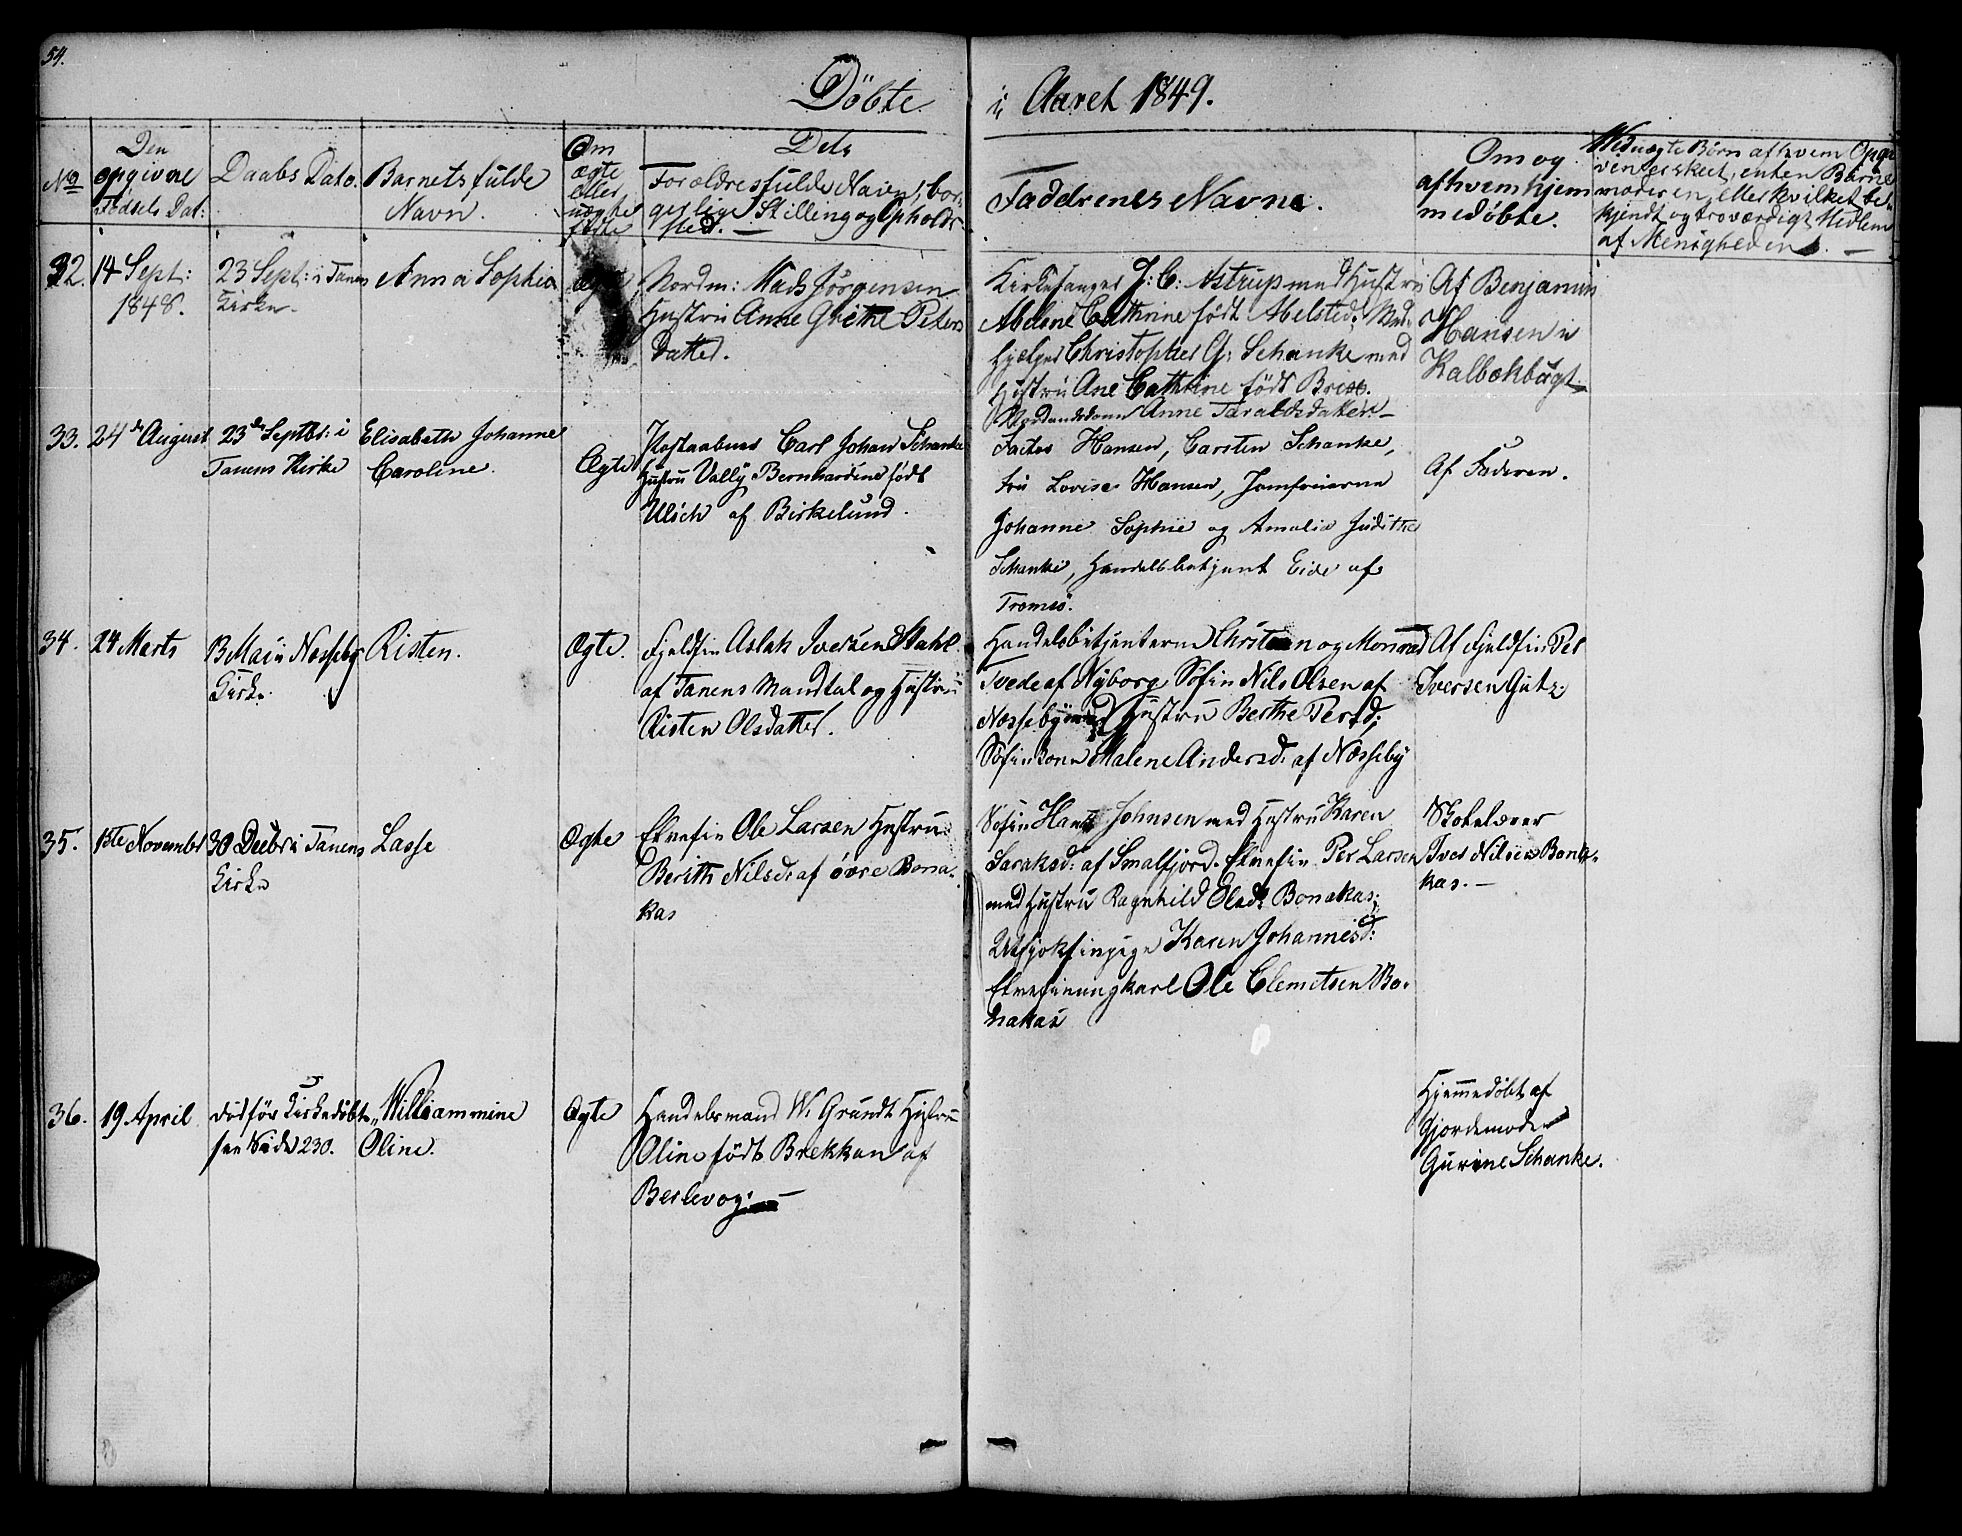 54.
Döbte i Aaret 1849.
No
Den opgivne Födsels Dat:
Daabs Dato.
Barnets fulde Navn.
Om ægte eller uægte födte
Dets Forældres fulde Navn, borgerlige Stilling og Opholdssted. —
Faddrenes Navne.
Om og af hvem hjemmedöbte.
Ved uægte Börn af hvem Opgivende skeet, enten Barnemoderen, eller hvilket bekjendt og troværdigt Medlem af Menigheden. —
32.
14 Sept:
1848.
23 Sept: i Tanens
Kirke.
Anna Sophia
Ægte
Nordm: Mads Jörgensen
Hustru Anne Grethe Peters
datter.
Kirkesanger J: C: Astrup med Hustru
Abelone Cathrine födt Abelsted; Med-
hjælper Christopher G: Schanke med
Hustru Ane Cathrine födt Brix.
Nordmandskone Anne Taraldsdatter —
Af Benjamin
Hansen i
Kalbekbugt.
33.
24de August
23de Septbr: i
Tanens Kirke
Elisabeth Johanne
Caroline.
Ægte
Postaabner Carl Johan Schanke
Hustru Vally Bernhardine födt
Ulich af Birkelund.
Factor Hansen, Carsten Schanke,
Fru Lovise Hansen, Jomfruerne
Johanne Sophie og Amalia Judithe
Schanke, Handelsbetjent Eide af
Tromsö.
Af Faderen.
34.
24 Marts
13 Mai i Næsseby
Kirke.
Risten.
Ægte.
Fjeldfin Aslak Iversen Stahl
af Tanens Mandtal og Hustru
Risten Olsdatter.
Handelsbetjenterne Christian og Monrad
Tvede af Nyborg, Söfin Nils Olsen af
Næsseby med Hustru Berthe Persd;
Söfinkone Malene Andersd. af Næsseby
Af Fjeldfin Per
Iversen Gutz.
35.
1ste November
30 Decbr i Tanens
Kirke
Lasse
Ægte
Elvefin Ole Larsen Hustru
Berith Nilsd. af övre Bona-
kas
Söfin Hans Johnsen med Hustru Karen
Saraksd: af Smalfjord. Elvefin Per Larsen
med Hustru Ragnhild Olsd: Bonakas;
Utsjokfinpige Karen Johannesd:
Elvefinungkarl Ole Clemetsen Bo-
nakas
Skolelærer
Iver Nilsen Bona-
kas. —
36.
19 April
död för Kirkedöbt
see Side 230.
Williammine
Oline.
Ægte
Handelsmand W. Grundt Hustru
Oline födt Brekkan af
Berlevog. —
Hjemmedöbt af
Gjordemoder
Gurine Schanke.